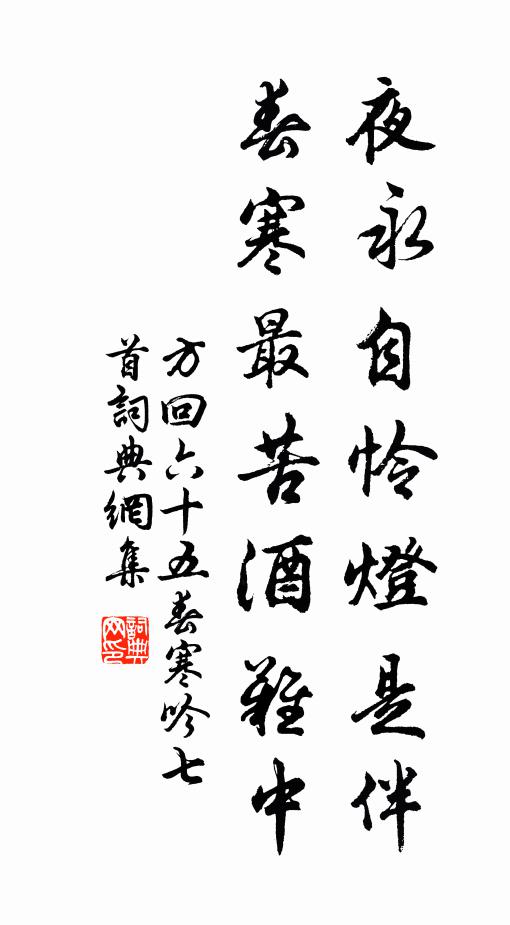 夜永自怜燈是伴
春寒最苦酒難中
方回六十五春寒吟七
首詞典網集
詞典
网印